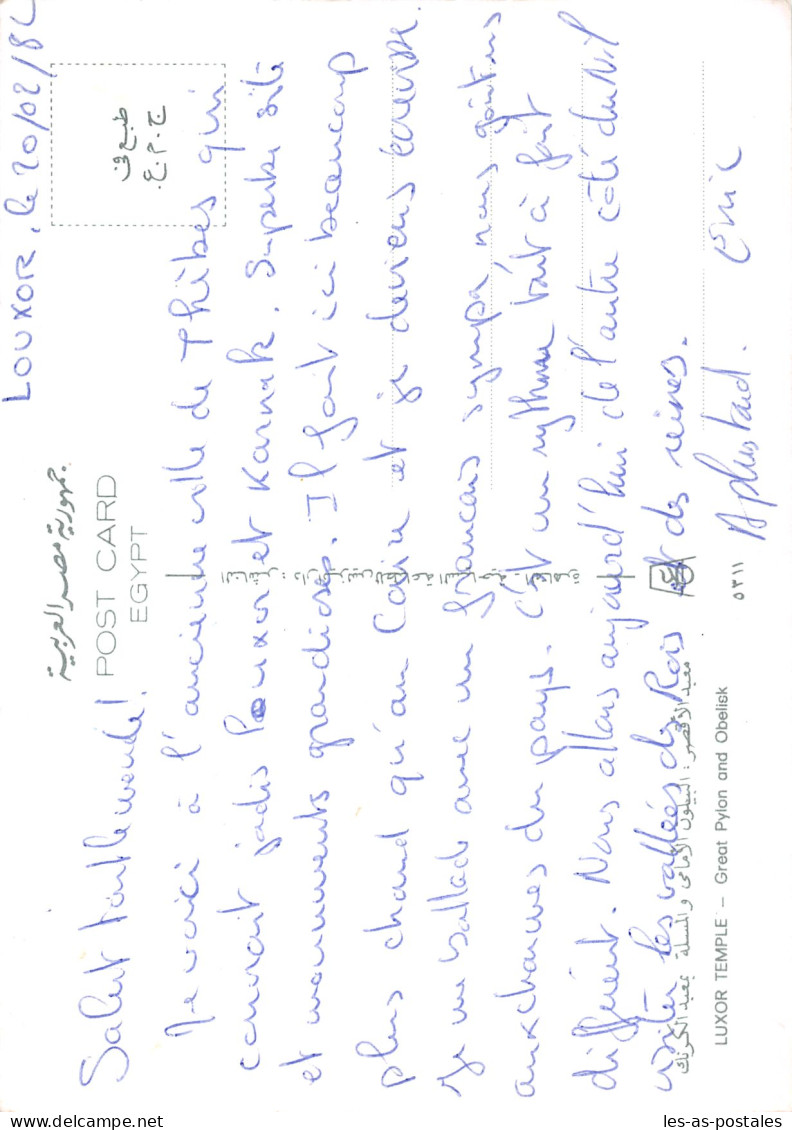 LOUXOR, le 20/02/82
جمهورية مصر العربية
POST CARD
EGYPT
طبع فى
ج.م.ع.
Salut tout le monde!
Me voici à l'ancienne ville de Thèbes qui
couvrait jadis Louxor et Karnak. Superbe site
et monuments grandioses. Il fait ici beaucoup
plus chaud qu'au Caire et je deviens
Je me ballade avec un français sympa, nous goûtons
aux charmes du pays. C'est un rythme tout à fait
différent. Nous allons aujourd'hui de l'autre côté du Nil
visiter les vallées des Rois et des reines.
A plus tard. Eric
معبد الأقصر : البيلون الأمامى والمسلة بمعبد الكرنك
LUXOR TEMPLE – Great Pylon and Obelisk
٥٣١١
les-as-postales.com